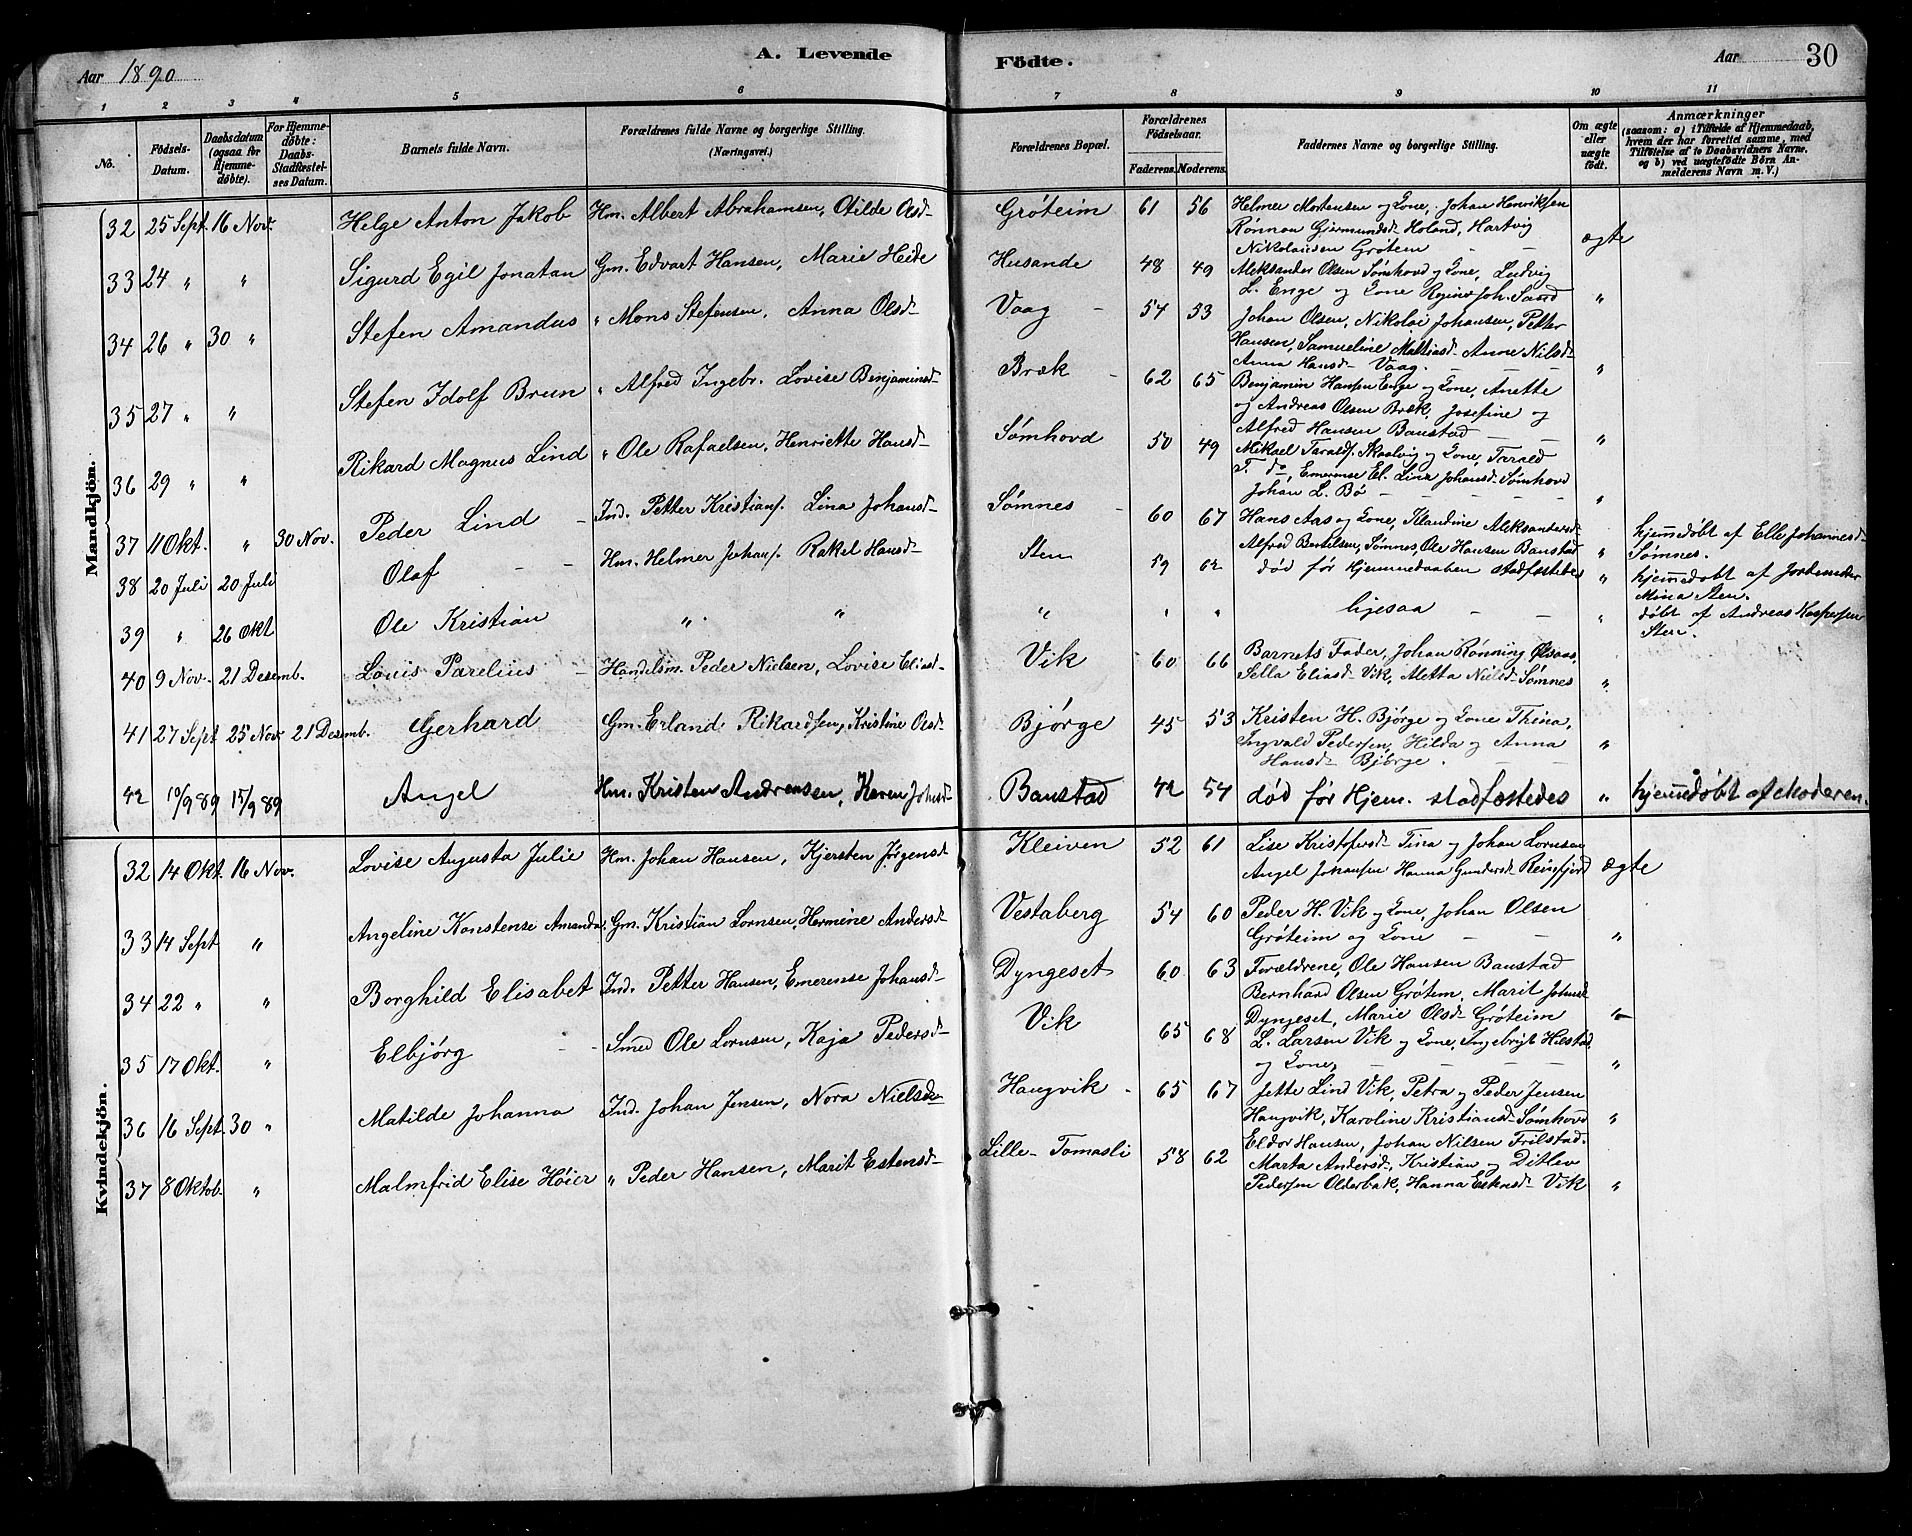 Aar 1890
A. Levende
Födte.
Aar
30
1 2 3 4 5 6 7 8 9 10 11
No.
Födsels-Datum.
Daabsdatum (ogsaa for Hjemmedöbte).
For Hjemmedöbte: Daabs-Stadfæstelses Datum.
Barnets fulde Navn.
Forældrenes fulde Navne og borgerlige Stilling.
(Næringsvei.)
Forældrenes Bopæl.
Forældrenes Födselsaar.
Faderens. Moderens.
Faddernes Navne og borgerlige Stilling.
Om ægte eller uægte födt.
Anmærkninger
(saasom: a) i Tilfælde af Hjemmedaab, hvem der har forrettet samme, med Tilföielse af to Daabsvidners Navne, og b) ved uægtefödte Börn Anmelderens Navn m. V.)
Mandkjön.
32 25 Sept. 16 Nov. Helge Anton Jakob Hm. Albert Abrahamsen, Otilde Olsd- Gröteim 61 56 Helmer Mortensen og Kone, Johan Henriksen
Rönnou Gjermundsd- Holand, Hartvig
Nikolaisen Grötem - - ægte
33 24 " " Sigurd Egil Jonatan Gm. Edvart Hansen, Marie Heide Husande 48 49 Aleksander Olsen Sömhovd og Kone, Ludvig
L. Enge og Kone Regine Joh. Sand "
34 26 " 30 " Stefen Amandus " Mons Stefensen, Anna Olsd- Vaag - 54 53 Johan Olsen, Nikolai Johansen, Petter
Hansen, Samueline Mattiasd- Anne Nilsd-
Anna Hansd- Vaag. - - "
35 27 " " Stefen Idolf Brun " Alfred Ingebr. Lovise Benjaminsd- Bræk - 62 65 Benjamin Hansen Enge og Kone, Anette
og Andreas Olsen Bræk, Josefine og
Alfred Hansen Banstad - - "
36 29 " " Rikard Magnus Lind " Ole Rafaelsen, Henriette Hansd- Sömhovd 50 49 Mikael Taralds. Skaalvig og Kone, Tarald
T. do, Emerense El. Lina Johansd- Sömhovd
Johan L. Bö - - - - "
37 11 Okt. " 30 Nov. Peder Lind - Ind. Petter Kristians. Lina Johansd- Sömnes - 60 67 Hans Aas og Kone, Klaudine Aleksandersd-
Alfred Bertelsen, Sömnes, Ole Hansen Banstad " hjemdöbt af Elle Johannesd-
Sömnes.
38 20 Juli 20 Juli Olaf - - Hm. Helmer Johans. Rakel Hansd- Sten 59 62 död för Hjemmedaaben stadfæstedes " hjemmedöbt af Jordemoder
Mina Sten.
39 " 26 Okt Ole Kristian " " " " " ligesaa - - " döbt af Andreas Kaspersen
Sten.
40 9 Nov. 21 Desemb. Louis Parelius - Handelsm. Peder Nielsen, Lovise Eliasd- Vik 60 66 Barnets Fader, Johan Rönning
Sella Eliasd- Vik, Aletta Nielsd- Sömnes "
41 27 Sept 25 Nov. 21 Desemb. Gerhard Gm. Erland Rikardsen, Kristine Olsd- Björge 45 53 Kristen H. Björge og Kone Thina,
Ingvald Pedersen, Hilda og Anna
Hansd- Björge. - "
42 10/9 89 15/9 89 Angel Hm. Kristen Andreassen, Karen Johnsd- Banstad 42 54 död för Hjem. stadfæstedes " hjemmedöbt af Moderen.
Kvindekjön.
32 14 Okt. 16 Nov. Lovise Augusta Julie Hm. Johan Hansen, Kjersten Jörgensd- Kleiven 52 61 Lise Kristofersd- Tina og Johan Lornsen
Angel Johansen Hanna Gundersd- Reinfjord ægte
33 14 Sept " Angeline Konstense Amanda. Gm. Kristian Lornsen, Hermine Andersd- Vestaberg 54 60 Peder H. Vik og Kone, Johan Olsen
Gröteim og Kone - - "
34 22 " " Borghild Elisabet Ind. Petter Hansen, Emerense Johansd- Dyngeset 60 63 Forældrene, Ole Hansen Banstad
Bernhard Olsen Grötem, Marit Johnsd-
Dyngeset, Marie Olsd- Gröteim "
35 17 Okt. " Elbjörg - - Smed Ole Lornsen, Kaja Pedersd- Vik 65 68 L. Larsen Vik og Kone, Ingebrigt Hilstad,
og Kone, - - - "
36 16 Sept. 30 " Matilde Johanna Ind. Johan Jensen, Nora Nielsd- Haugvik - 65 67 Jette Lind Vik, Petra og Peder Jensen
Haugvik, Karoline Kristiansd- Sömhovd "
37 8 Oktob. " Malmfrid Elise Höier " Peder Hansen, Marit Estensd- Lille-Tomasli 58 62 Eldor Hansen, Johan Nilsen Trilstad.
Marta Andersd-, Kristian og Ditlev
Pedersen Olderbak, Hanna Estensd- Vik "